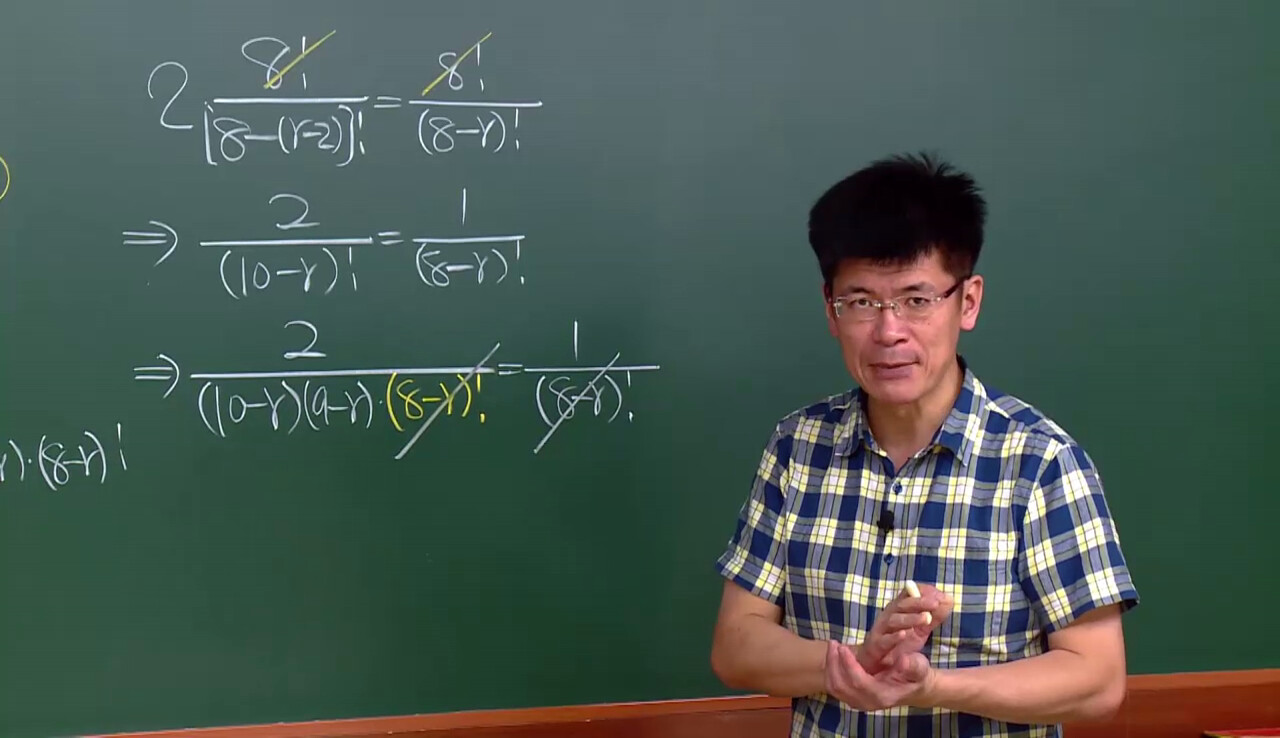 2 8!/[8-(r-2)]! = 8!/(8-r)!
⇒ 2/(10-r)! = 1/(8-r)!
⇒ 2/(10-r)(9-r)·(8-r)! = 1/(8-r)!
r)·(8-r)!